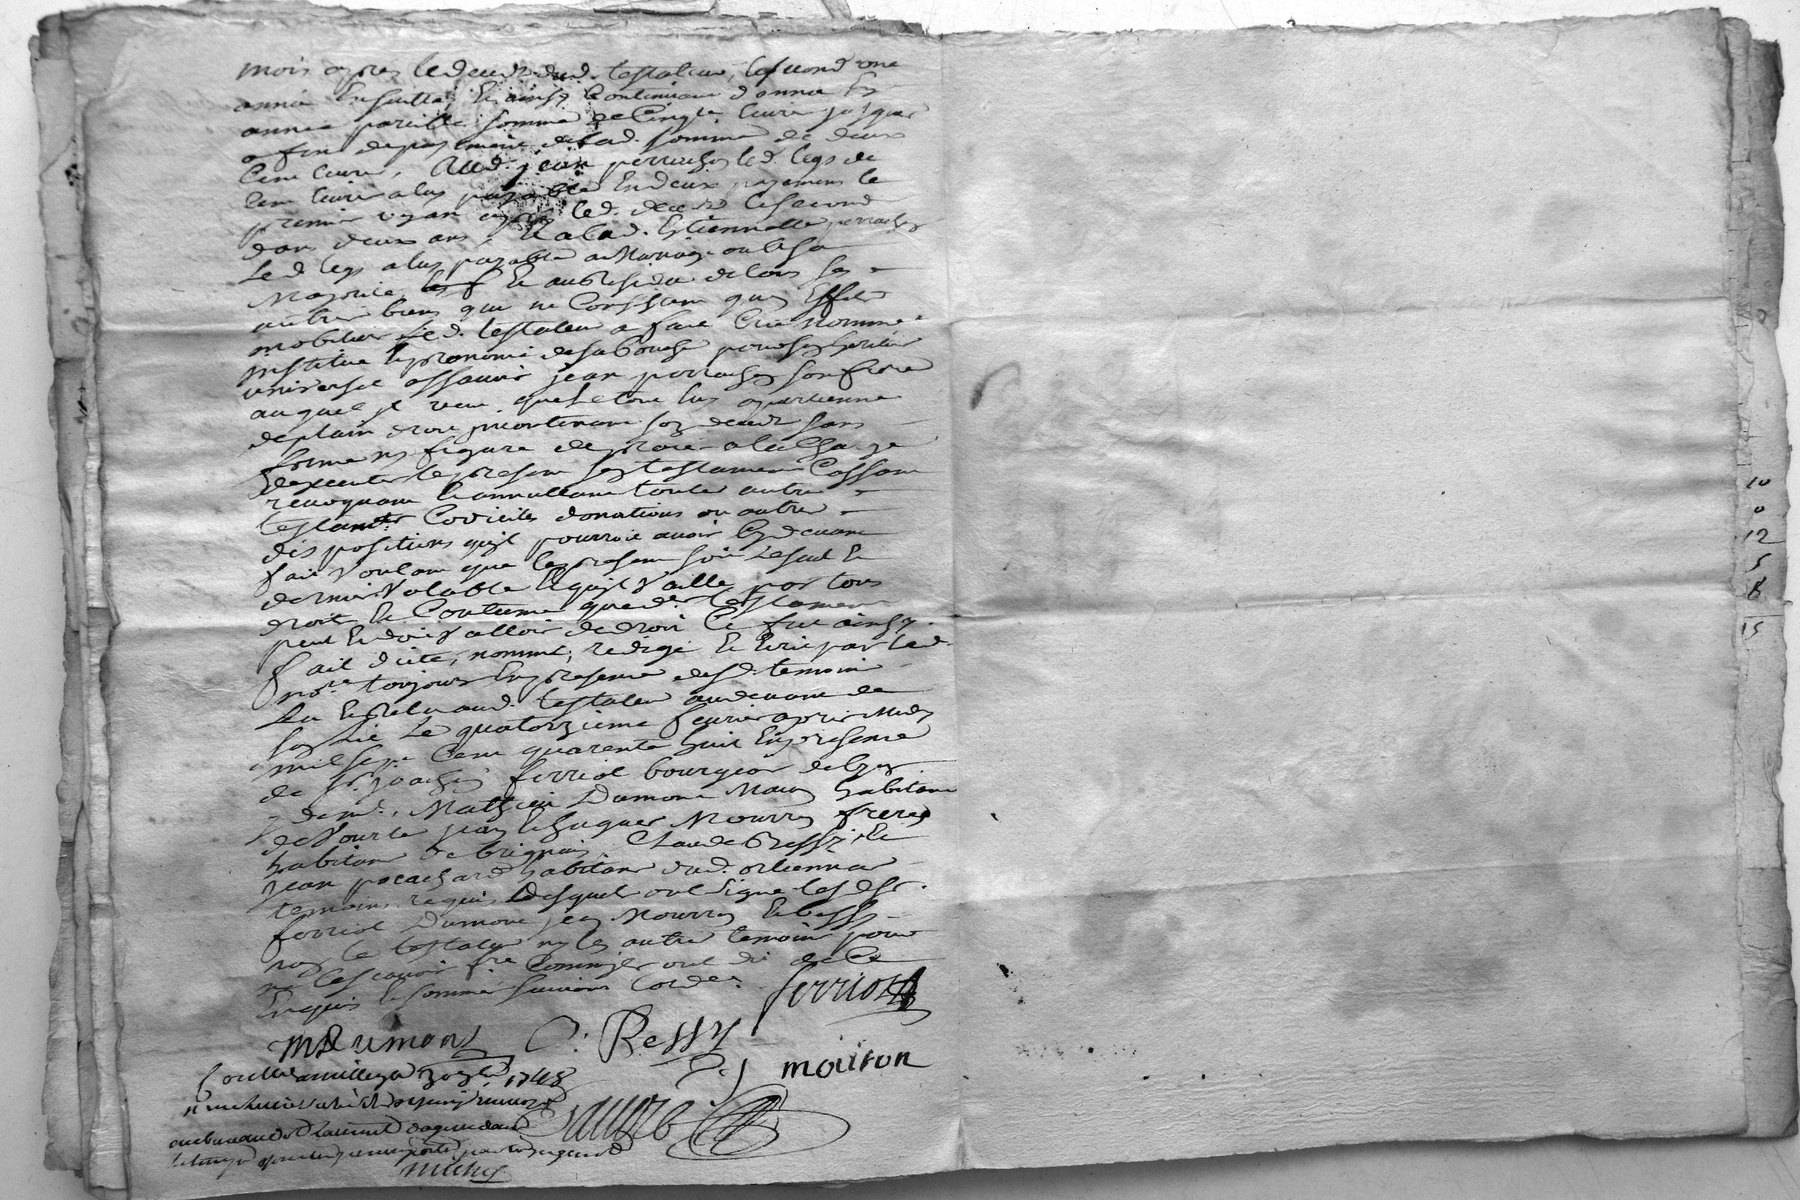 mois apres le deced dud. testateur, le second une
année Ensuitte, Et ainsy Continuant d'année En
année pareille somme de Cinq livre jusques
a fin de payement de lad. somme de deux
Cent livres, Aud. jean perrachon led. legs de
Cent livres a luy payable En deux payemens le
premier un an apres led. deced le second
dans deux ans, Et a lad. Estiennette perrachon
Led legs a luy payable au Mariage ou a sa
Majorité, Et au Residu de tous ses
autres biens qui ne Consistent qu'en Effets
mobiliers Led. testateur a faict Créé nommé
institué Et prononcé de sa bouche pour son heritier
universel assavoir jean perrachon son frere
auquel je veux que le tout luy apartienne
de plain droit incontinant son deced sans
forme ny figure de proces a la Charge
d'executer le present son testament Cassant
revoquant Et annullant toutes autres
testaments Codiciles donations ou autres
dispositions qu'il pourroit avoir Cy devant
fait Voulant que le present soit le seul Et
dernier Valable Et qu'il Vaille par tous
droits Et Coutume que de testament
peut Et doit Valloir de droit Ce fut ainsy
fait dicté, nommé, redigé Et Ecrit par led.
nore. toujours En presence desd. temoins
Lu Et Relu aud. testateur au devant de
son lit Le quatorzieme fevrier apres Midy
mil sept Cent quarente huit En presence
de Sr. joachin ferriol bourgeois de lyon
y dem.t, Mathieu Dumont Maçon habitant
de Vourle jean Et huguet Mourron freres
habitans de brignais, Claude Ressy, Et
jean pocachard habitans dud. orliennas
temoins requis Desquels ont signé les Srs.
ferriol Dumont jean Mourron Et Ressy
non le testateur ny les autres temoins pour
ne le scavoir fre. Comm'ils ont dit de Ce
Enquis Et sommés suivant l'orde.
ferriol
m Dumont C. Ressy
J mouron
1748
michy
10
0
12
5
8
15